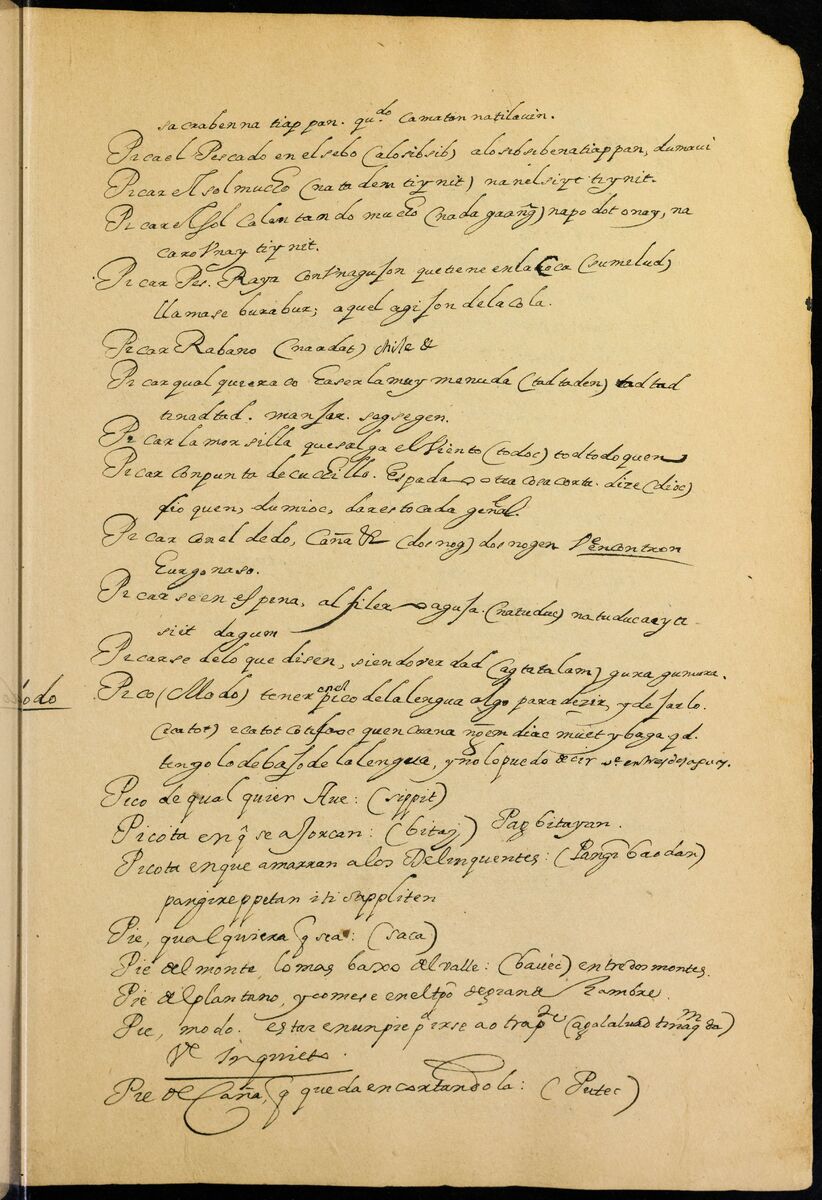 sacrabenna tiap pan. qu.do camatan natilavin.
Picael Pescado en el sebo (alosibsib) alosibsibenatiappan, dumaui
Picar el sol mucho (nata dem tiynit) nanelsiyt tiynit.
Picar el sol calentando mucho (nada grang) napo dot onay, na
carovnay tiynit.
Picar Pes. Raya con vnaguson que tiene en la Coca (sumelud)
llamase burabur; aquel agison de la cola.
Picar Rabano (naadat) chile &
Picar qual quiera co haserla muy menuda (tadtaden) tadtad
tinadtad. manjar. sagsegen.
Picar la morsilla que salga el viento (todoc) todtodoquen
Picar con punta de cuchillo. Espada o otra cosa cortu. dize (dioc)
dioquen, dumioc, dar estocada gen̄al.
Picar con el dedo, Caña &ª (dosnog) dosnogen Vᵉ encontron
hurgonaso.
Picarse en espina, alfiler o aguja. (natuduc) natuducacyti
siit dagum
Picarse de lo que disen, siendo verdad (agtatalam) gura gumura.
odo Pico (Modo) tener en el pico de la lengua algo para dezir, y dejarlo.
(ecatot) ecatot quen cuana ngem diac muet ybaga qd.
tengo lo debajo de la lengua, y no lo puedo decir
Pico de qual quier Ave: (sippit)
Picota en q̄ se ajorcan: (bitay) Pag bitayan.
Picota en que amarran a los Delinquentes: (Pangi baodan)
pangireppetan iti sappliten
Pie, qual quiera q̄ sea: (saca)
Pie del monte, lo mas baxo del valle: (bauec) entre dos montes.
Pie del plantano, y comese en el tpō de grande hambre.
Pie, modo. estar en un pie
Vᵉ Inquieto.
Pie de Caña, q̄ queda en cortandola: (Putec)